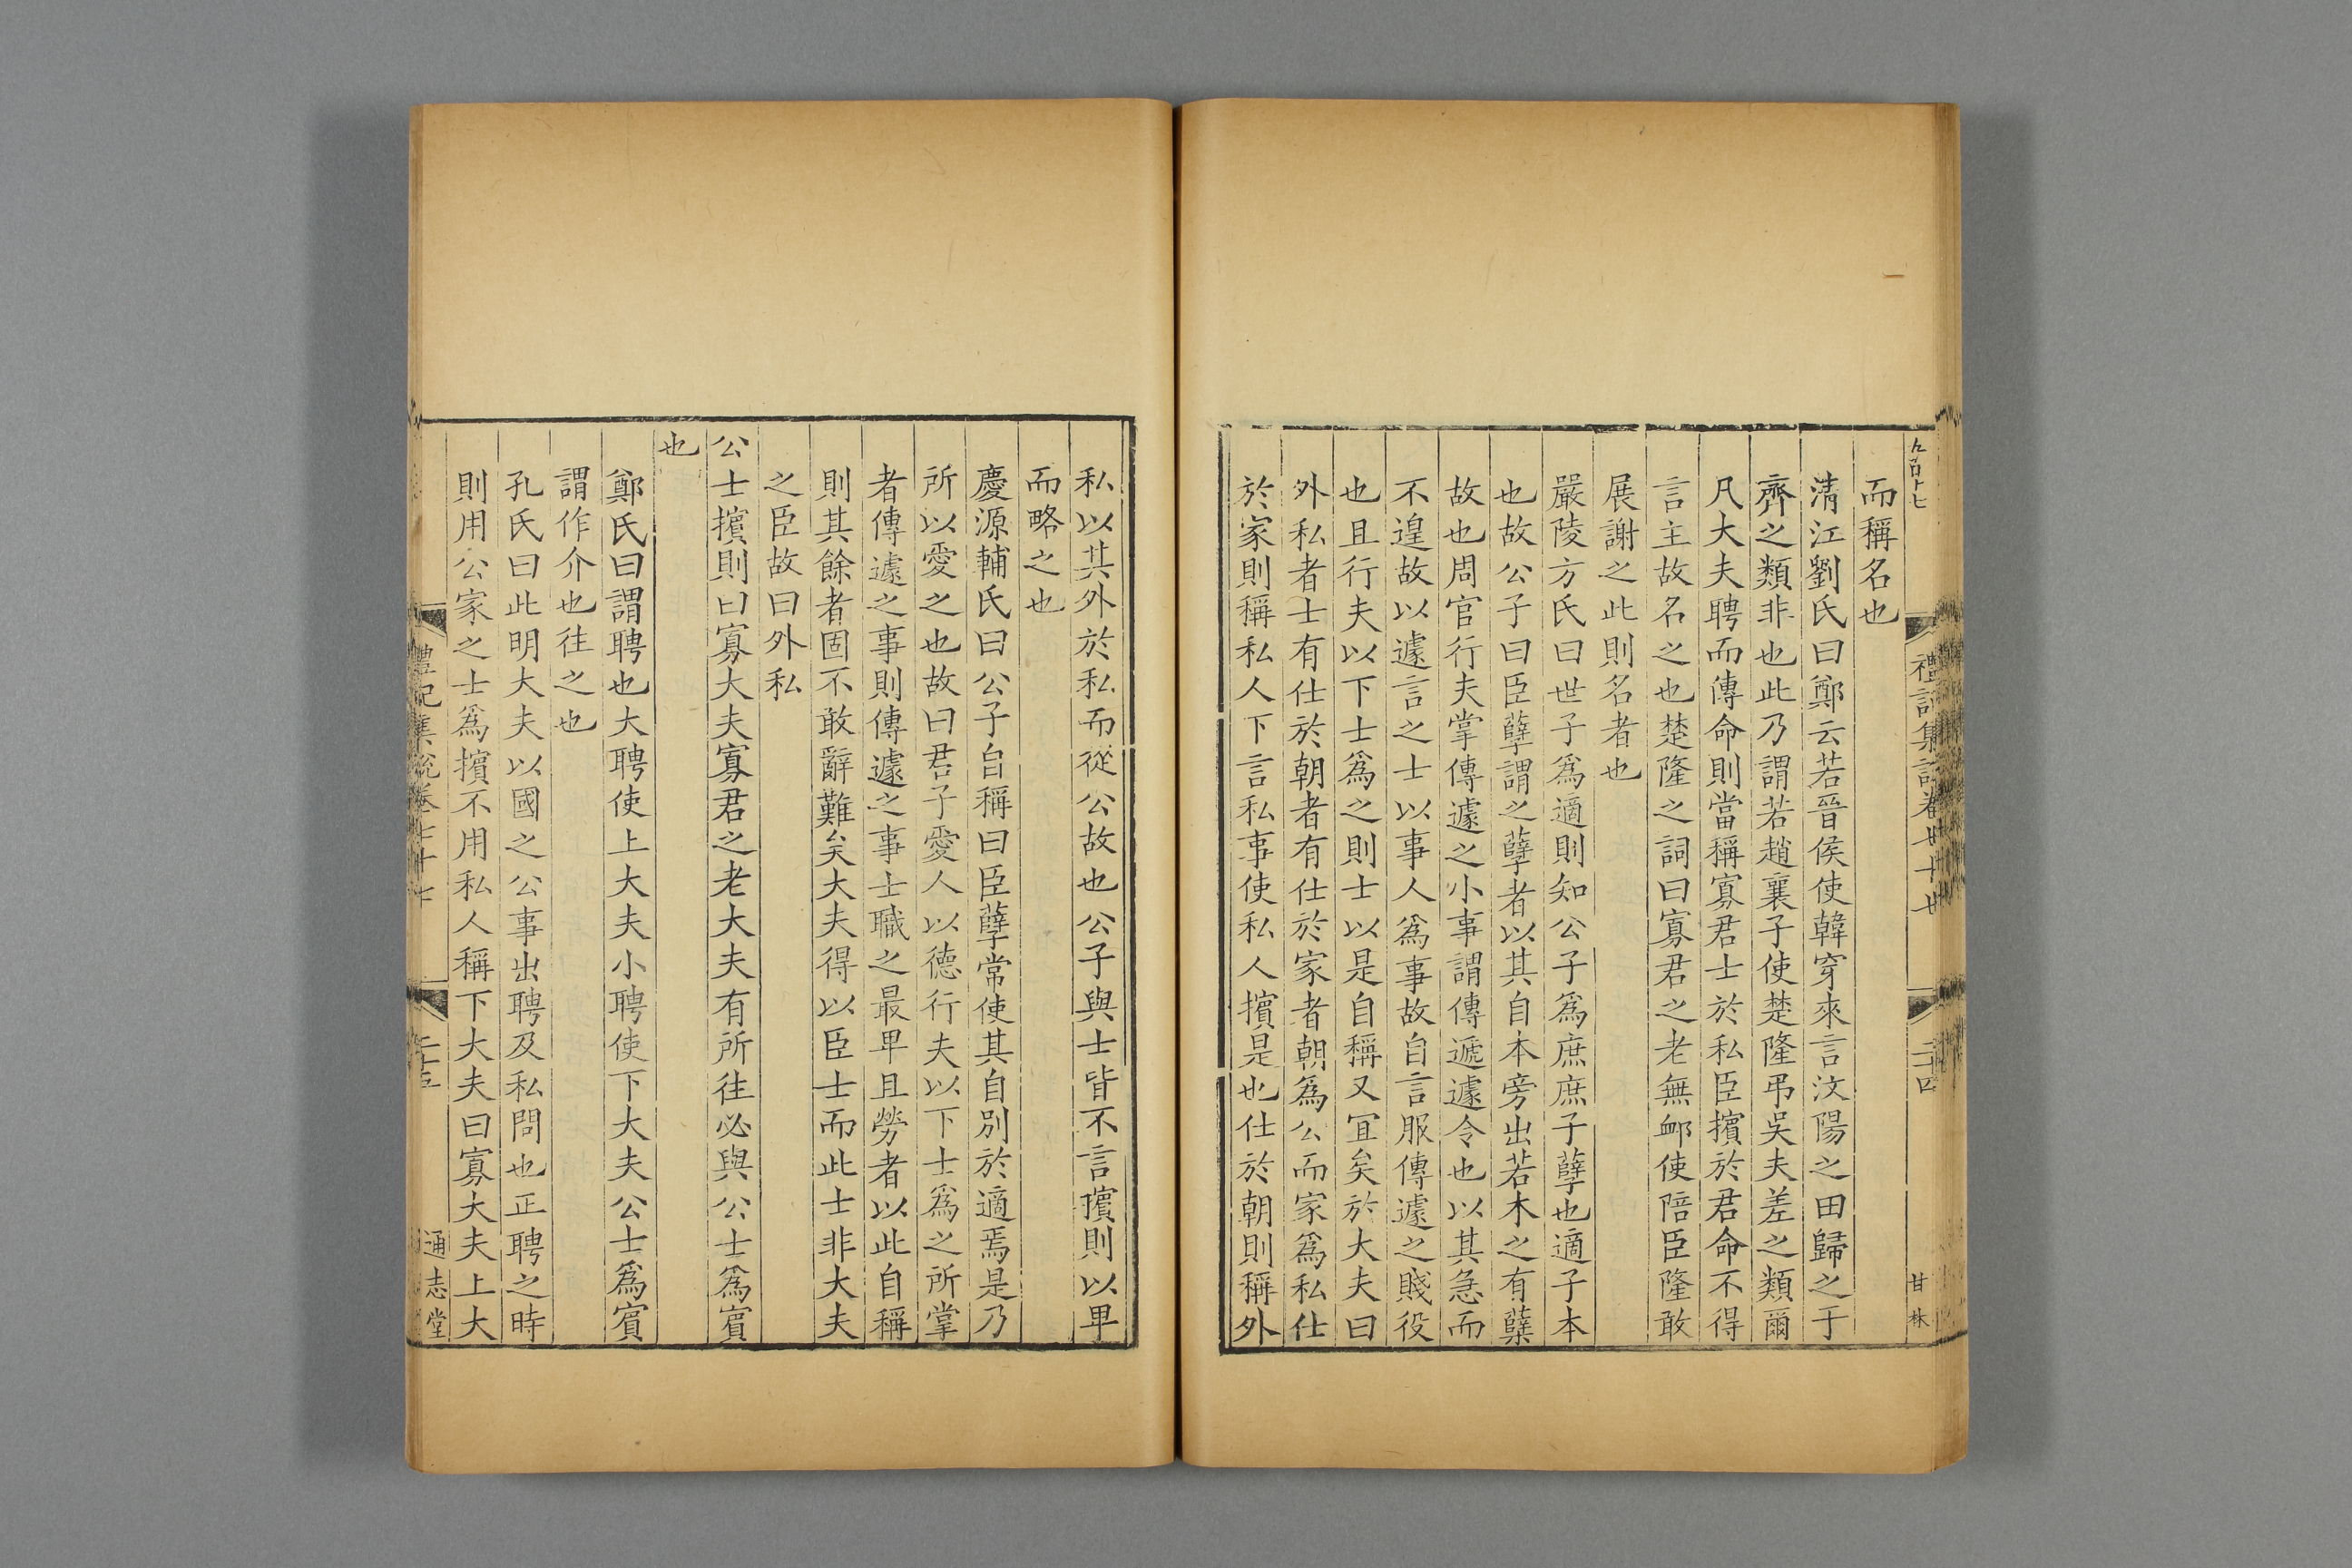 而稱名也
清江劉氏曰鄭云若晉侯使韓穿來言汶陽之田歸之于
齊之類非也此乃謂若趙襄子使楚隆弔吳夫差之類爾
凡大夫聘而傳命則當稱寡君士於私臣擯於君命不得
言主故名之也楚隆之詞曰寡君之老無卹使陪臣隆敢
展謝之此則名者也
嚴陵方氏曰世子爲適則知公子爲庶庶子孽也適子本
也故公子曰臣孽謂之孽者以其自本旁出若木之有蘖
故也周官行夫掌傳遽之小事謂傳遞遽令也以其急而
不遑故以遽言之士以事人爲事故自言服傳遽之賤役
也且行夫以下士爲之則士以是自稱又宜矣於大夫曰
外私者士有仕於朝者有仕於家者朝爲公而家爲私仕
於家則稱私人下言私事使私人擯是也仕於朝則稱外
私以其外於私而從公故也公子與士皆不言擯則以卑
而略之也
慶源輔氏曰公子自稱曰臣孽常使其自別於適焉是乃
所以愛之也故曰君子愛人以德行夫以下士爲之所掌
者傳遽之事則傳遽之事士職之最卑且勞者以此自稱
則其餘者固不敢辭難矣大夫得以臣士而此士非大夫
之臣故曰外私
公士擯則曰寡大夫寡君之老大夫有所往必與公士爲賓
也
鄭氏曰謂聘也大聘使上大夫小聘使下大夫公士爲賓
謂作介也往之也
孔氏曰此明大夫以國之公事出聘及私問也正聘之時
則用公家之士爲擯不用私人稱下大夫曰寡大夫上大
禮記集說卷七十七
二十五
通志堂